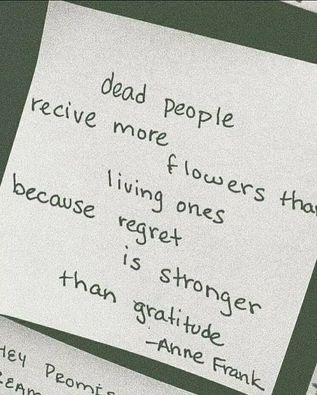 dead people
recive more
flowers tha
living ones
because regret
is stronger
than gratitude
-Anne Frank
HEY PROMIS